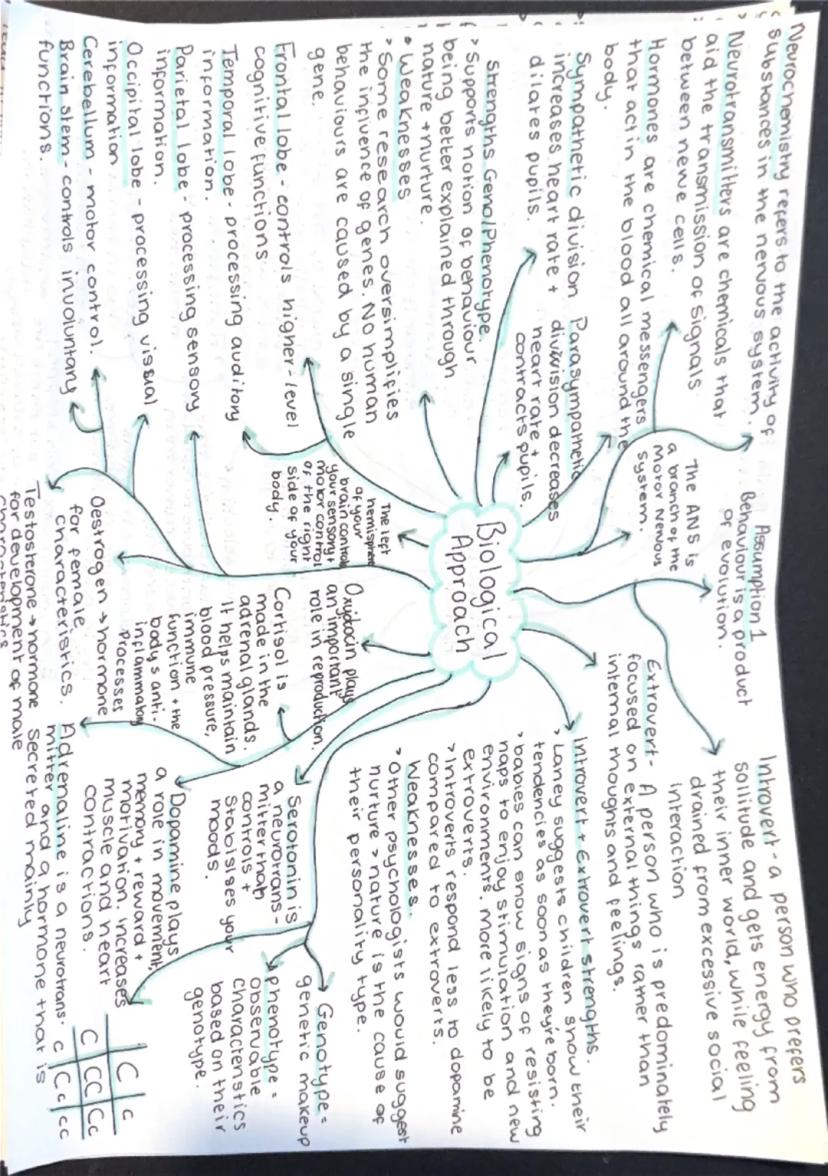 Neurochemistry refers to the activity of
substances in the nervous system.
Neurotransmitters are chemicals that
aid the transmission of signals
between nerve cells.
Hormones are chemical messengers
that act in the blood all around the
body.
Sympathetic division
increases heart rate +
dilates pupils.
Parasympathetic
division decreases
heart rate +
contracts pupils.
Strengths Geno/Phenotype
> Supports notion of behaviour
being better explained through
nature + nurture.
• Weaknesses
> Some research oversimplifies
the influence of genes. No human
behaviours are caused by a single
gene.
Frontal lobe - controls higher-level
cognitive functions.
Temporal lobe - processing auditory
information.
Parietal lobe - processing sensory
information.
Occipital lobe - processing visual
information
Cerebellum - motor control.
Brain stem - controls involuntary
functions.
Assumption 1
Behaviour is a product
of evolution.
The ANS is
a branch of the
Motor Nervous
System.
Biological
Approach
The left
hemisphere
of your
brain controls
your sensory +
motor control
of the right
side of your
body.
Oxytocin plays
an important
role in reproduction.
Cortisol is
made in the
adrenal glands.
It helps maintain
blood pressure,
immune
function + the
body's anti-
inflammatory
processes
Oestrogen → hormone
for female
characteristics.
Testosterone → hormone
for development of male
Introvert - a person who prefers
sollitude and gets energy from
their inner world, while feeling
drained from excessive social
interaction
Extrovert - A person who is predominately
focused on external things rather than
internal thoughts and feelings.
Introvert + Extrovert strengths.
> Laney suggests children show their
tendencies as soon as they're born.
> babies can show signs of resisting
naps to enjoy stimulation and new
environments. More likely to be
extroverts.
> Introverts respond less to dopamine
compared to extroverts.
Weaknesses.
> Other psychologists would suggest
nurture > nature is the cause of
their personality type.
Serotonin is
a neurotrans-
mitter that
controls +
stabisises your
moods.
Genotype =
genetic makeup
phenotype =
observable
characteristics
based on their
genotype.
Dopamine plays
a role in movement,
memory + reward +
motivation. Increases
muscle and heart
contractions.
Adrenaline is a neurotrans-
mitter and a hormone that is
secreted mainly
C c
C CC Cc
c Cc cc